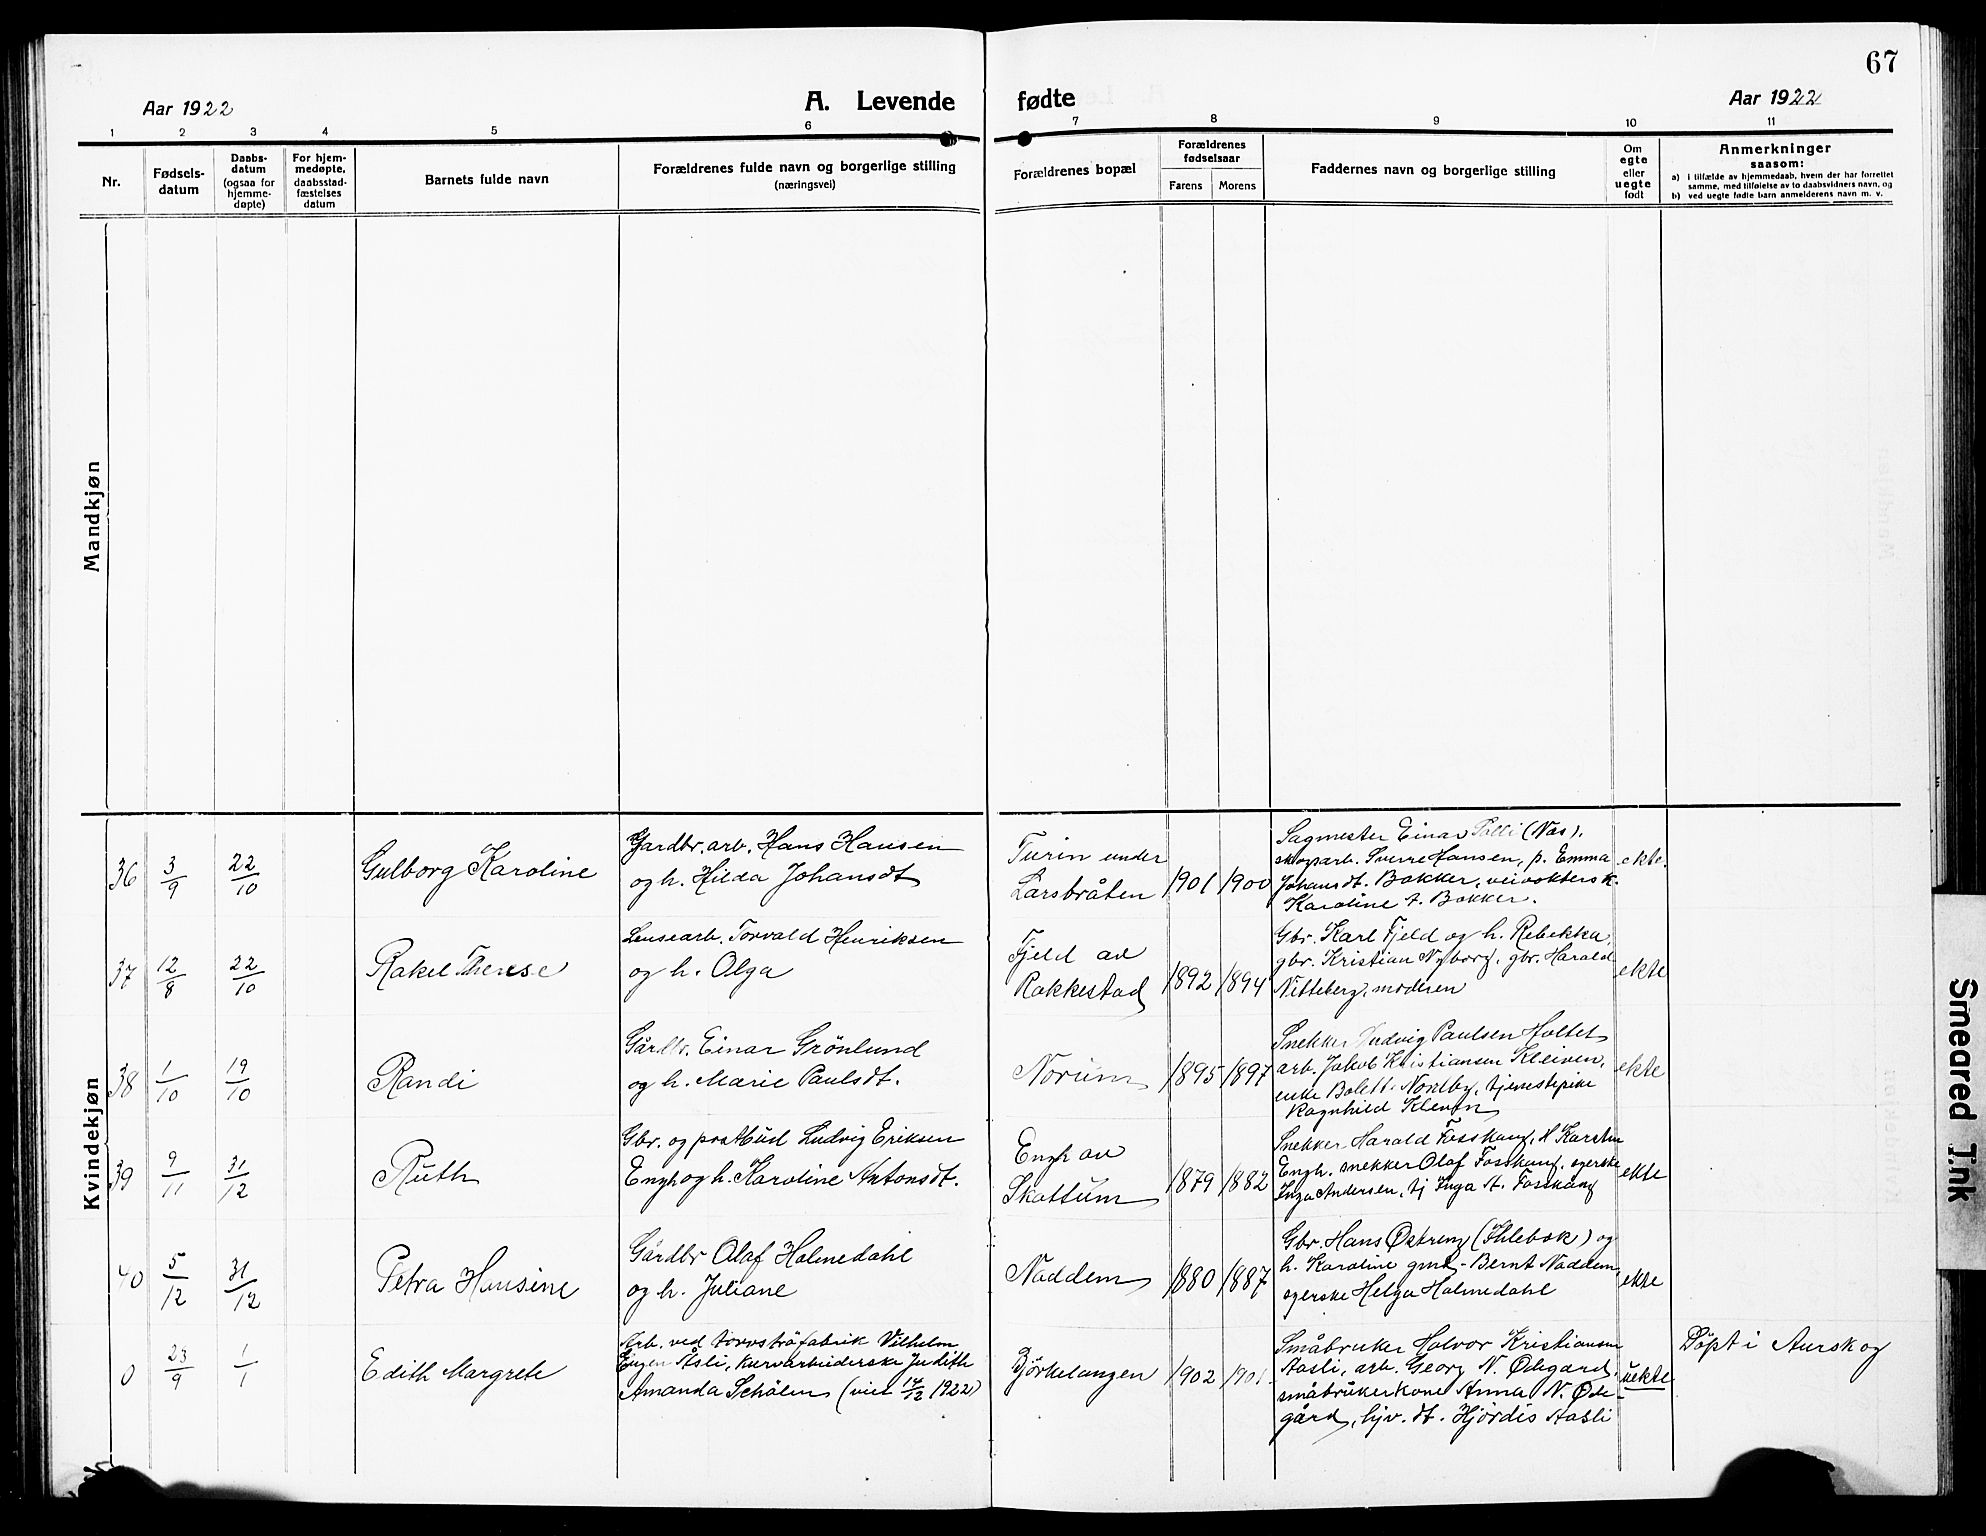 67
Aar 1922
A. Levende
fødte
Aar 1922
1 2 3 4 5 6 7 8 9 10 11
Nr.
Fødsels-
datum
Daabs-
datum
(ogsaa for
hjemme-
døpte)
For hjem-
medøpte,
daabsstad-
fæstelses
datum
Barnets fulde navn
Forældrenes fulde navn og borgerlige stilling
(næringsvei)
Forældrenes bopæl
Forældrenes
fødselsaar
Farens Morens
Faddernes navn og borgerlige stilling
Om
egte
eller
uegte
født
Anmerkninger
saasom:
a) i tilfælde av hjemmedaab, hvem der har forrettet
samme, med tilføielse av to daabsvidners navn, og
b) ved uegte fødte barn anmelderens navn m. v.
Mandkjøn
Kvindekjøn
36 3/9 22/10
Gulborg Karoline
Gardbr. arb. Hans Hansen
og h. Hilda Johansdt
Turin under
Larsbråten
1901 1900
Sagmester Einar Palli (Næs).
skogsarb. Sverre Hansen, p. Emma
Johansdt. Bakker, veivokters k.
Karoline A. Bakker.
ekte.
37 12/8 22/10
Rakel Therese
Lensearb. Torvald Henriksen
og h. Olga
Fjeld av
Rakkestad
1892 1894
Gbr. Karl Fjeld og h. Rebekka,
gbr. Kristian Nyborg, gbr. Harald
Nitteberg, moderen
ekte
38 1/10 19/10
Randi
Gårdbr. Einar Grönlund
og h. Marie Paulsdt.
Norum
1895 1897
Snekker Ludvig Paulsen Holtet
arb. Jakob Kristiansen Kleiven,
enke Bolett Nordby, tjenestepike
Ragnhild Kleven
ekte
39 9/11 31/12
Ruth
Gbr. og postbud Ludvig Eriksen
Engh og h. Karoline Antonsdt.
Engh av
Skattum
1879 1882
Snekker Harald Fosskaug, H Karsten
Engh. snekker Olaf Fosskaug. syerske
Inga Andersen, tj Inga A. Fosskaug
ekte
40 5/12 31/12
Petra Hansine
Gårdbr Olaf Halmedahl
og h. Juliane
Naddem
1880 1887
Gbr. Hans Østreng (Ihlebæk) og
h. Karoline gmd. Bernt Naddem,
syerske Helga Halmedahl
ekte
0 23/9 1/1
Edith Margrete
Arb. ved torvströfabrik Vilhelm
Eugen Åsli, kurvarbeiderske Judith
Amanda Schölen (viet 17/12 1922)
Björkelangen
1902 1901.
Småbruker Halvor Kristiansen
Aasli, arb. Georg N. Ødegard,
småbrukerkone Anna N. Øde-
gård, hjv. dt. Hjördis Aasli
uekte
Döpt i Aurskog
Smeared Ink